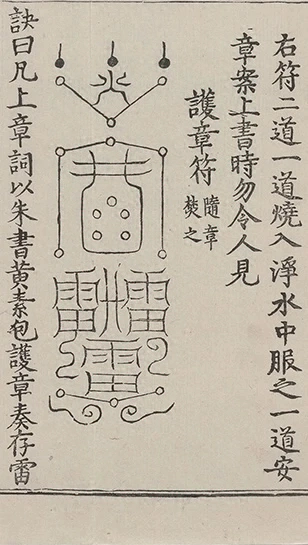 右符二道一道燒入淨水中服之一道安
章案上書時勿令人見
護章符
隨章
焚之
訣曰凡上章詞以朱書黃素包護章奏存雷